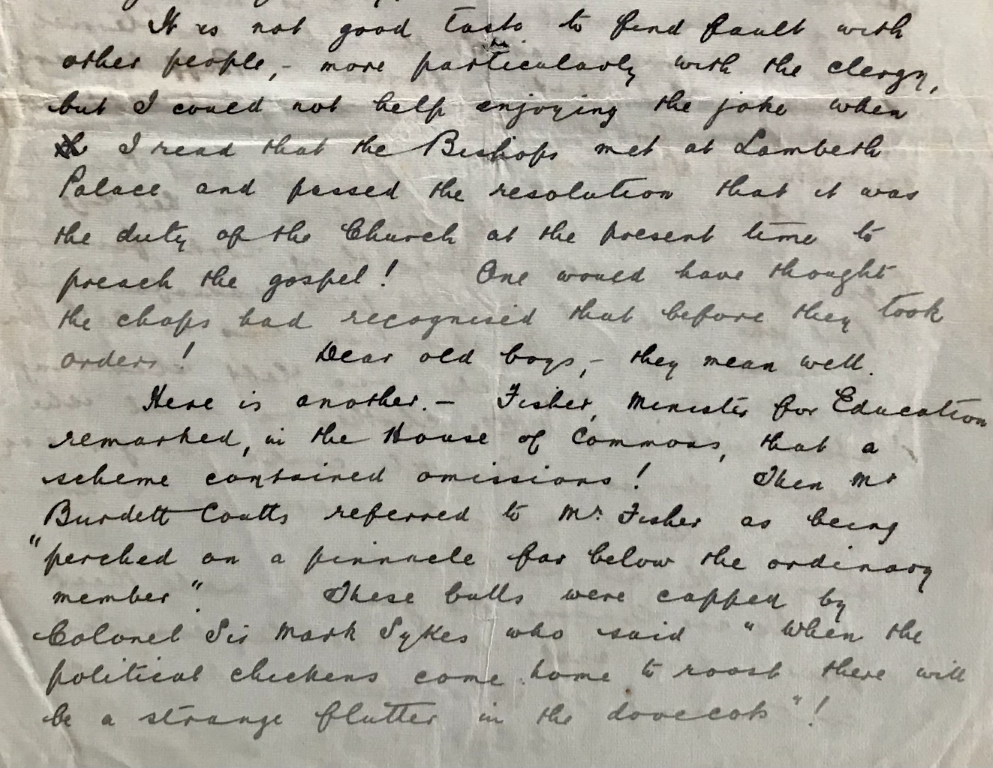 It is not good taste to find fault with
other people, - more particularly with the clergy,
but I could not help enjoying the joke when
I read that the Bishops met at Lambeth
Palace and passed the resolution that it was
the duty of the Church at the present time to
preach the gospel! One would have thought
the chaps had recognised that before they took
orders! Dear old boys, - they mean well.
Here is another. - Fisher, Minister for Education
remarked, in the House of Commons, that a
scheme contained omissions! Then Mr
Burdett Coutts referred to Mr. Fisher as being
"perched on a pinnacle far below the ordinary
member". These bulls were capped by
Colonel Sir Mark Sykes who said "When the
political chickens come home to roost there will
be a strange flutter in the dovecots"!